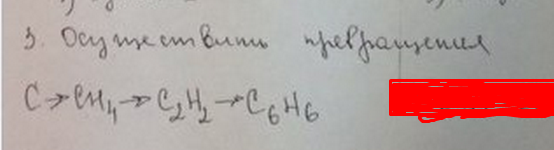 3. Осуществить превращения
C→CH₄→C₂H₂→C₆H₆